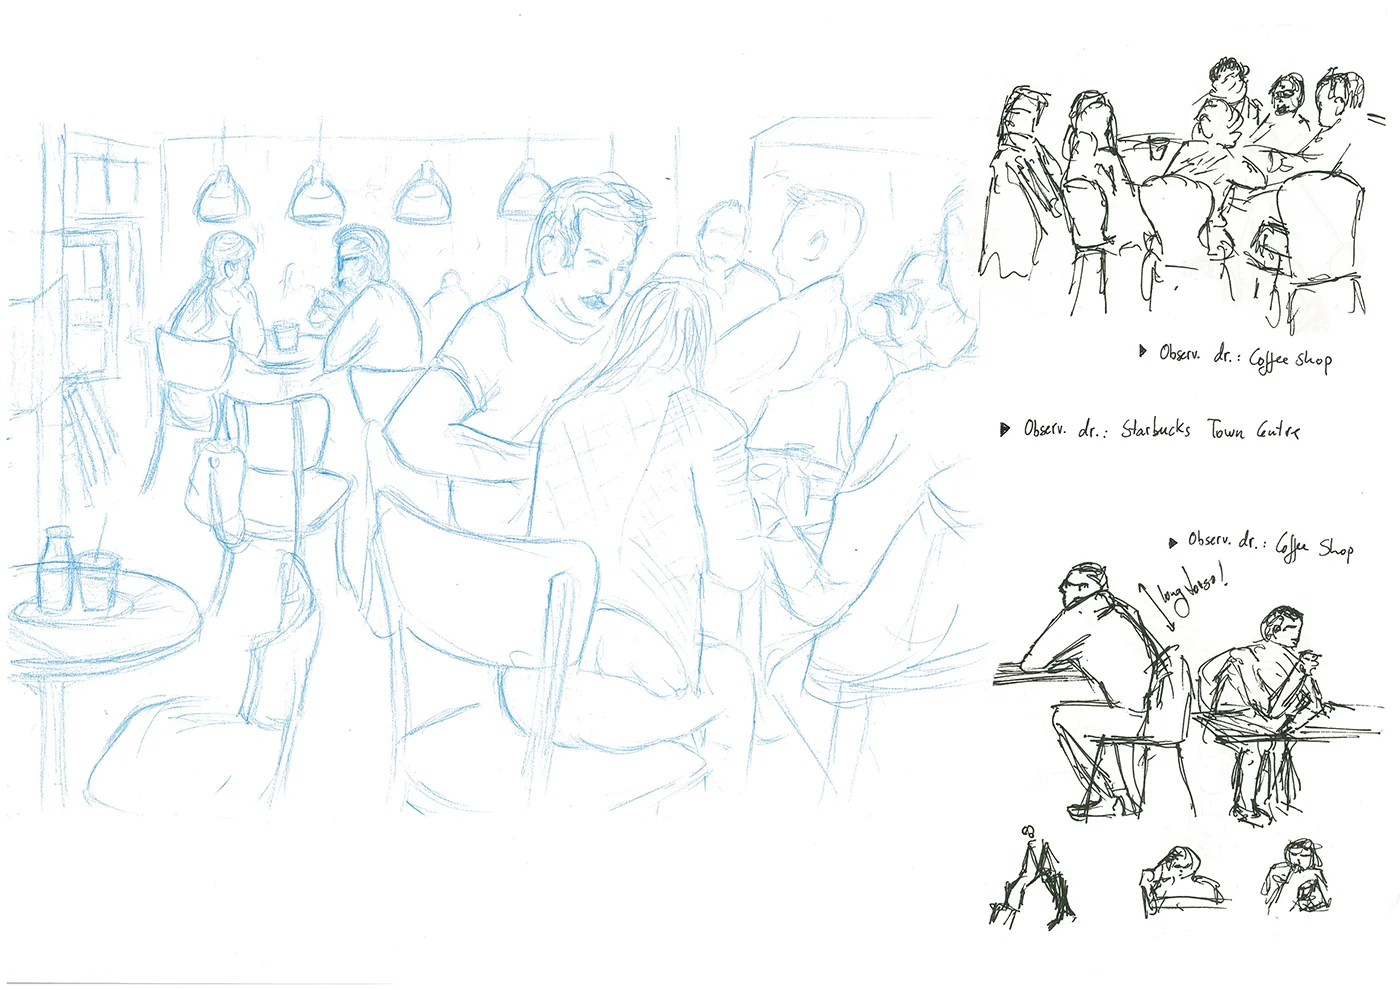 Observ. dr.: Coffee shop
Observ. dr.: Starbucks Town Centre
Observ. dr.: Coffee Shop
long torso!